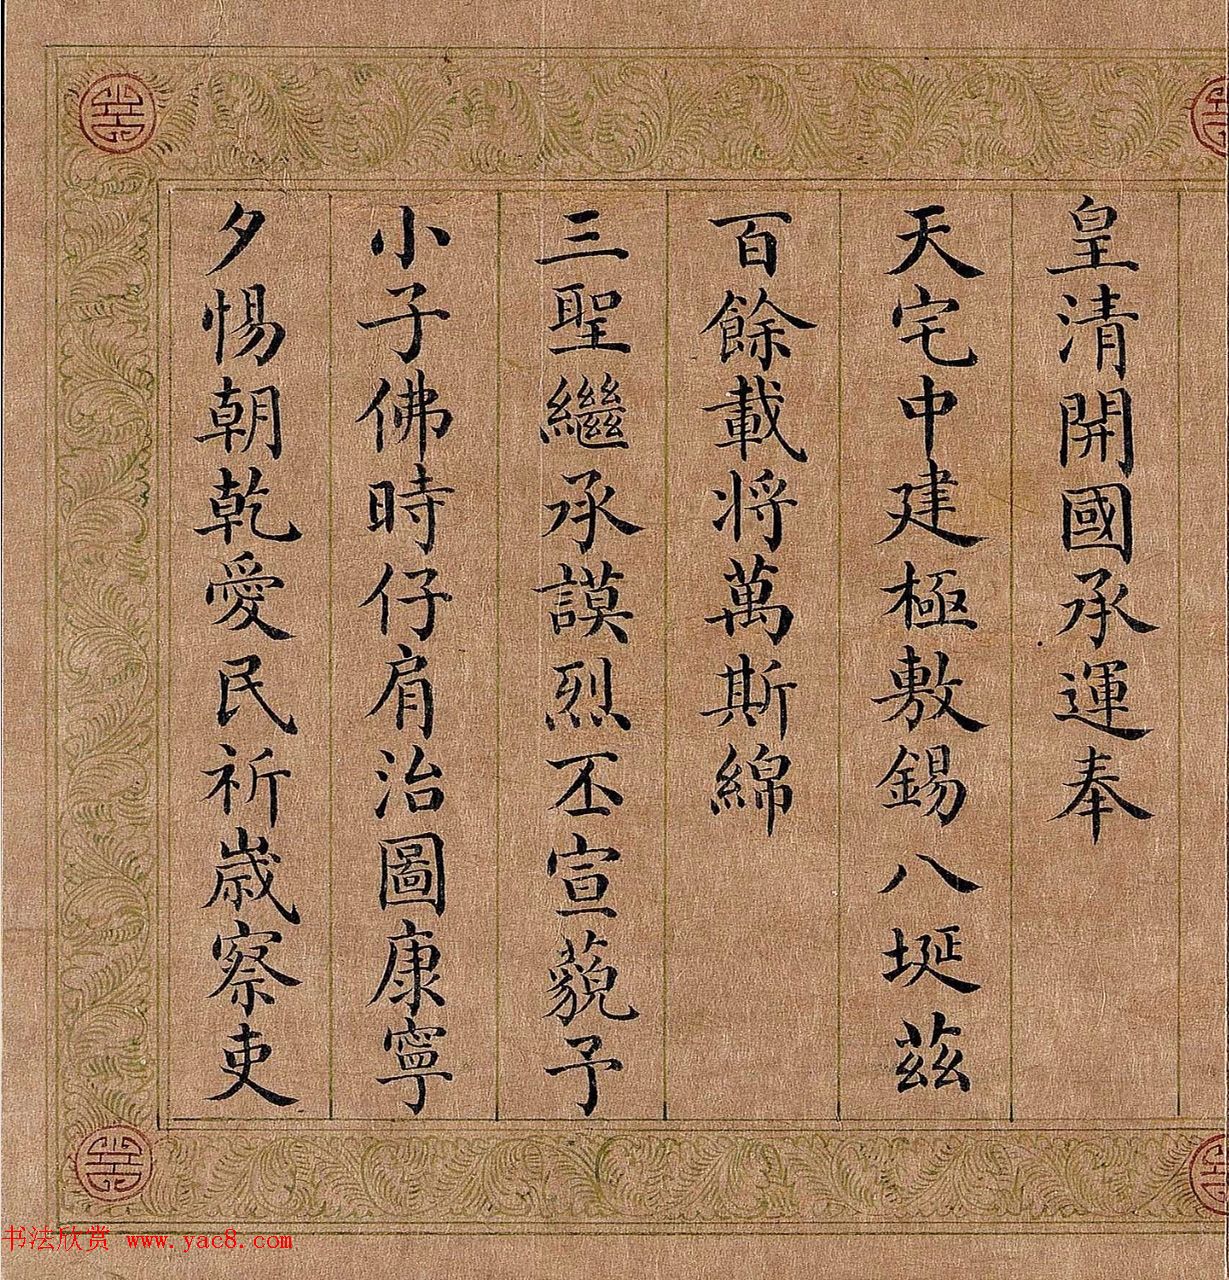 皇清開國承運奉
天宅中建極敷錫八埏茲
百餘載將萬斯綿
三聖繼承謨烈丕宣藐予
小子佛時仔肩治圖康寧
夕惕朝乾愛民祈歲察吏
书法欣赏 www.yac8.com